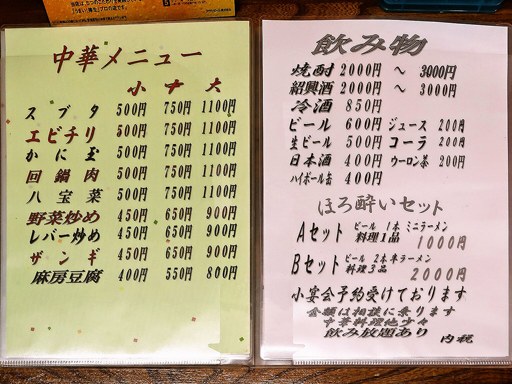 中華メニュー
小 中 大
スブタ 500円 750円 1100円
エビチリ 500円 750円 1100円
かに玉 500円 750円 1100円
回鍋肉 500円 750円 1100円
八宝菜 500円 750円 1100円
野菜炒め 450円 650円 900円
レバー炒め 450円 650円 900円
ザンギ 450円 650円 900円
麻房豆腐 400円 550円 800円
飲み物
焼酎 2000円 〜 3000円
紹興酒 2000円 〜 3000円
冷酒 850円
ビール 600円 ジュース 200円
生ビール 500円 コーラ 200円
日本酒 400円 ウーロン茶 200円
ハイボール缶 400円
ほろ酔いセット
Aセット ビール 1本 ミニラーメン
料理1品 1000円
Bセット ビール 2本 半ラーメン
料理3品 2000円
小宴会予約受けております
金額は相談に乗ります
中華料理他少々
飲み放題あり 内税